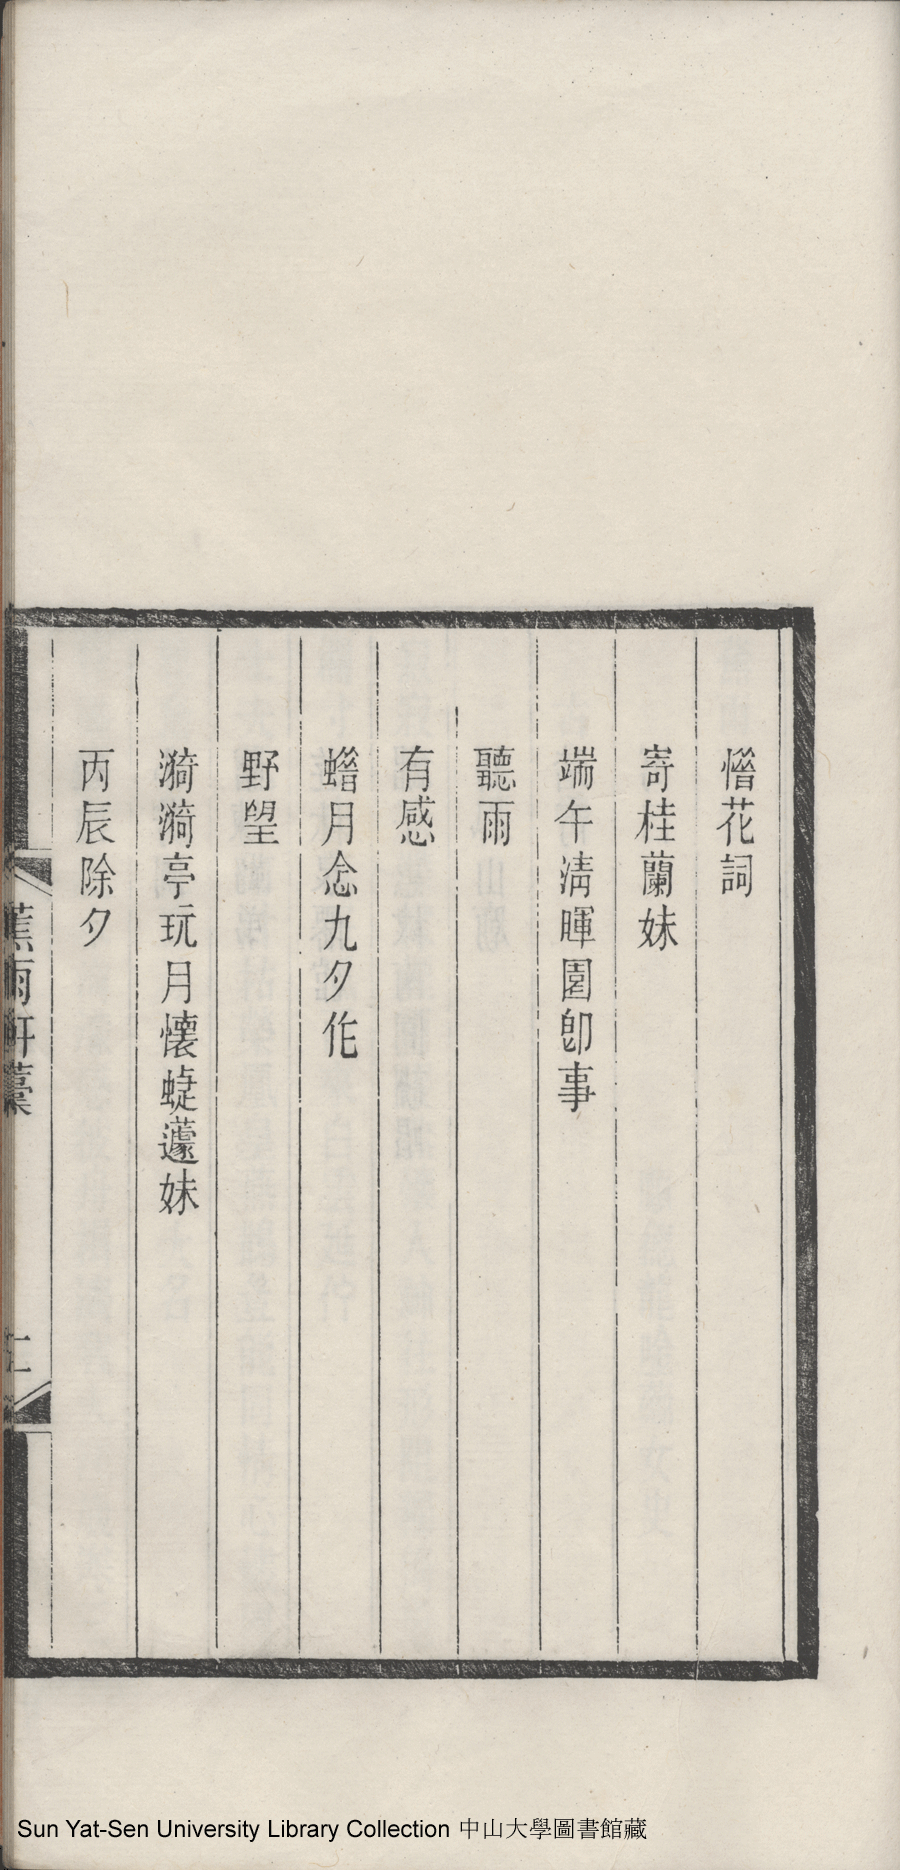 惜花詞
寄桂蘭妹
端午清暉園卽事
聽雨
有感
蜡月念九夕作
野望
漪漪亭玩月懷蜨蘧妹
丙辰除夕
蕉雨軒藁
Sun Yat-Sen University Library Collection 中山大學圖書館藏